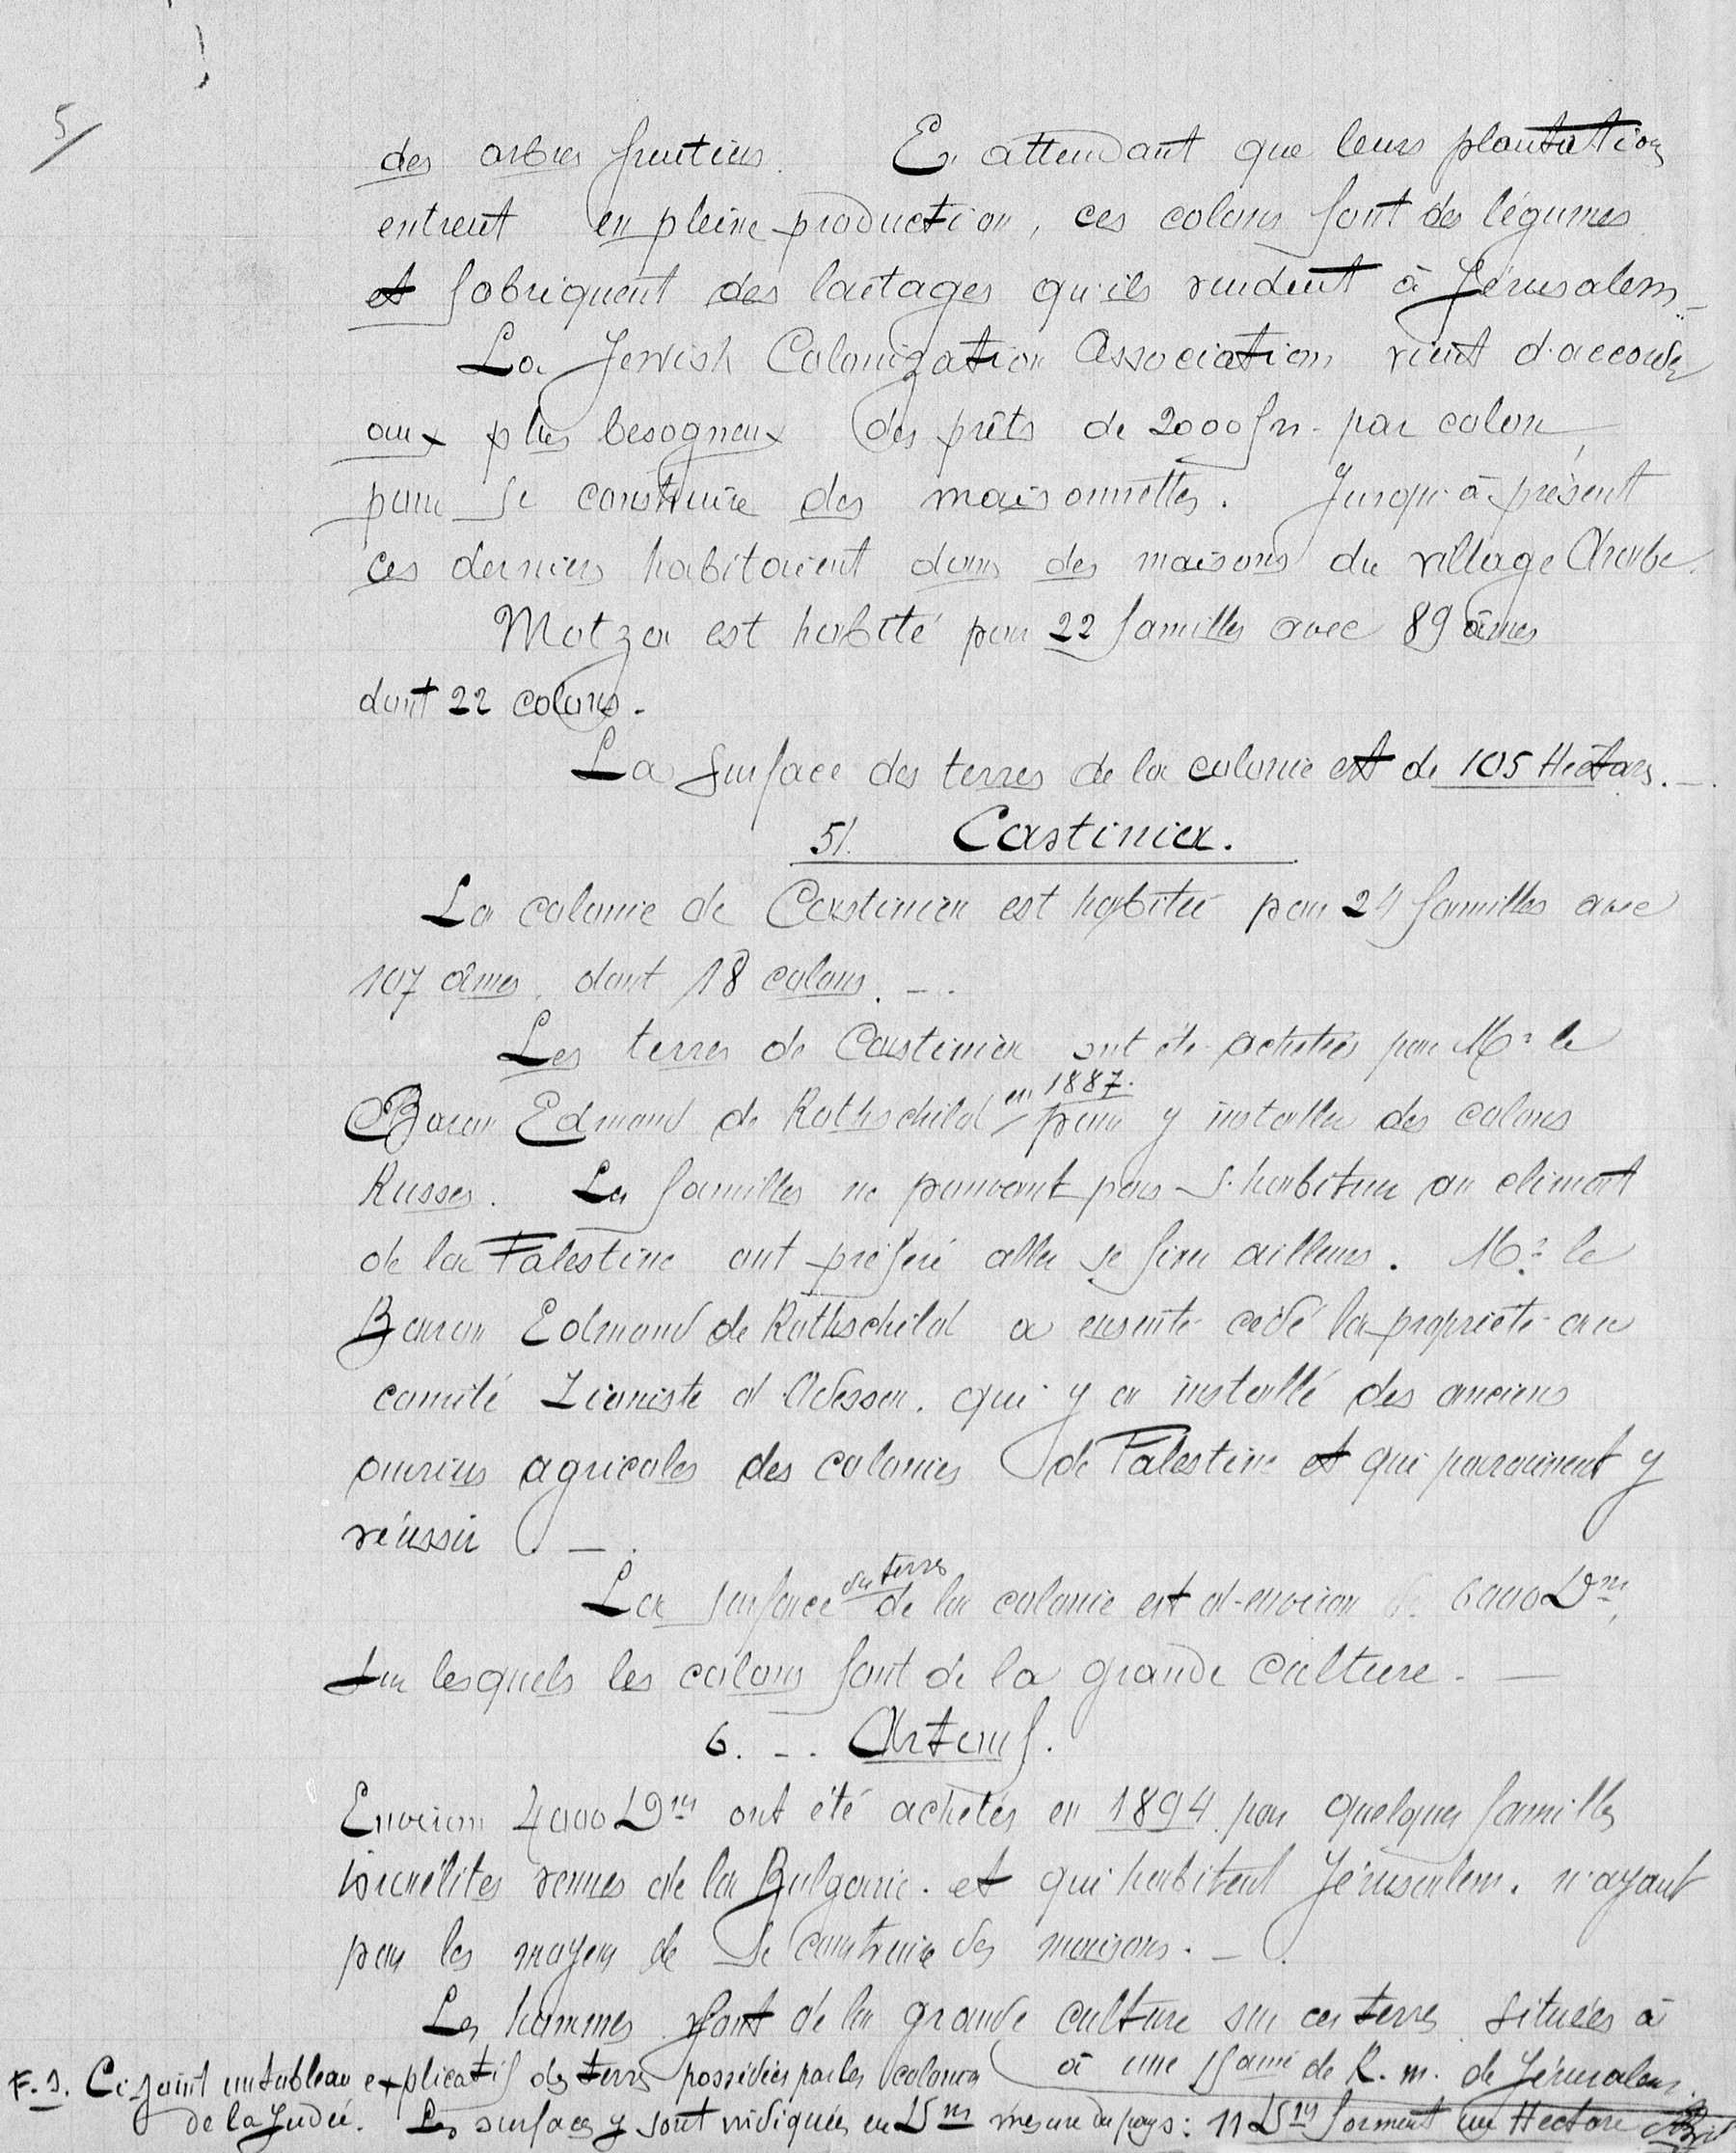 5/
des arbres fruitiers. En attendant que leurs plantation
entrent en pleine production, ces colons font des légumes
et fabriquent des laitages qu'ils vendent à Jérusalem.-
La Jewish Colonization Association vient d'accorder
aux plus besogneux des prêts de 2000 frs. par colon,
pour se construire des maisonnettes. Jusqu'à présent
ces derniers habitaient dans des maisons du village Arabe.
Motza est habité par 22 familles avec 89 âmes
dont 22 colons.
La surface des terres de la colonie est de 105 Hectars.-.
5/. Castinia.
La colonie de Castinia est habitée par 24 familles avec
107 âmes, dont 18 colons.-.
Les terres de Castinia ont été achetées par Mr le
Baron Edmond de Rothschild en 1887. pour y installer des colons
Russes. Les familles ne pouvant pas s'habituer au climat
de la Palestine ont préféré aller se fixer ailleurs. Mr. le
Baron Edmond de Rothschild a ensuite cédé la propriété au
comité Zioniste d'Odessa. qui y a installé des anciens
ouvriers agricoles des colonies de Palestine et qui paraissent y
réussir. -.
La surface des terres de la colonie est d'environ 6000 Dm,
sur lesquels les colons font de la grande culture. -
6. -. Artouf.
Environ 4000 Dm ont été achetés en 1894 par quelques familles
israélites venues de la Bulgarie. et qui habitent Jérusalem. n'ayant
pas les moyens de se construire des maisons. -.
Les hommes font de la grande culture sur ces terres situées à
à une de R. m. de Jérusalem.
Ci joint un tableau explicatif des terres possédées par les colonies
de la Judée. Les surfaces y sont indiquées en Dm mesure du pays: 11 Dm forment un Hectare